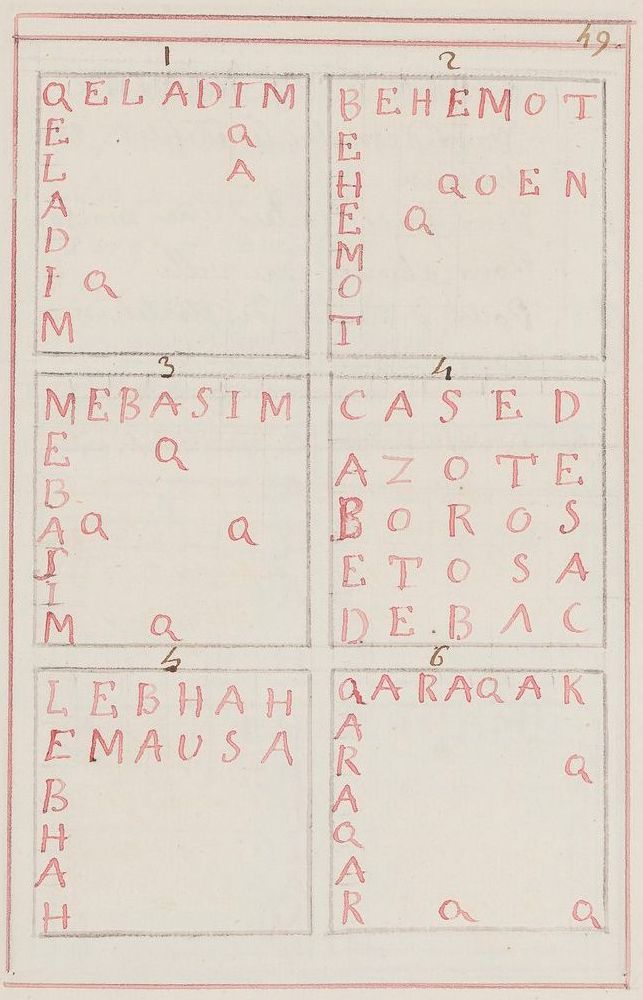 49.
1
QELADIM
E Q
L A
A
D
I Q
M
2
BEHEMOT
E
H QOEN
E Q
M
O
T
3
MEBASIM
E Q
B
A Q Q
S
I
M Q
4
CASED
AZOTE
BOROS
ETOSA
DE.BAC
5
LEBHAH
EMAUSA
B
H
A
H
6
QARAQAK
A
R Q
A
Q
A
R Q Q